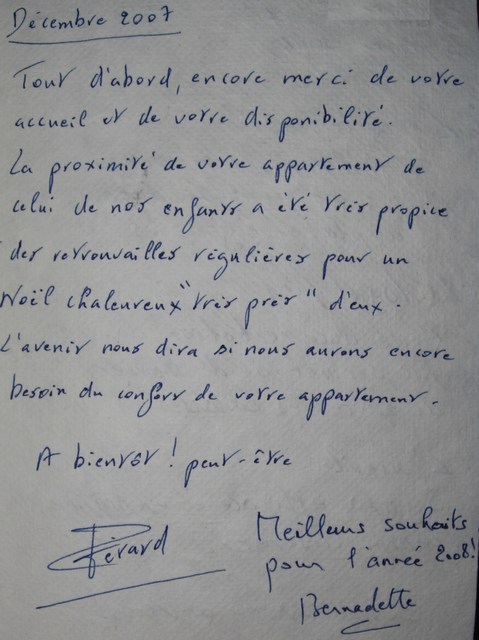 Décembre 2007
Tout d'abord, encore merci de votre
accueil et de votre disponibilité.
La proximité de votre appartement de
celui de nos enfants a été très propice
des retrouvailles régulières pour un
Noël chaleureux "très près" d'eux.
L'avenir nous dira si nous aurons encore
besoin du confort de votre appartement.
A bientôt ! peut-être
Gérard
Meilleurs souhaits
pour l'année 2008!
Bernadette